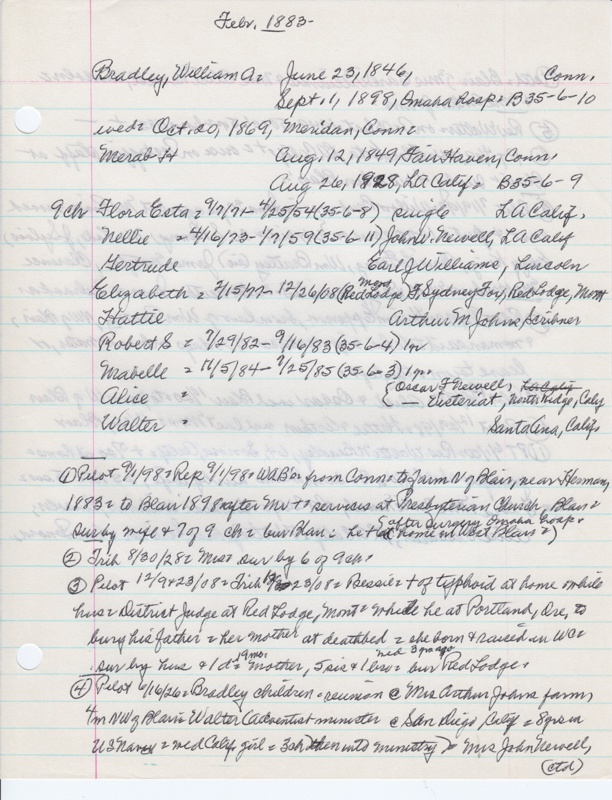 Febr. 1883-
Bradley, William A = June 23, 1846, Conn.
Sept. 1, 1898, Omaha Hosp = B35-6-10
wed = Oct. 20, 1869, Meridan, Conn =
Merab H Aug. 12, 1849, Fair Haven, Conn.
Aug 26, 1928, LA Calif = B35-6-9
9 ch Flora Esta = 9/7/71- 4/25/54 (35-6-8) single LA Calif.
Nellie = 4/16/73- 1/7/59 (35-6-11) John W. Newell, LA Calif
Gertrude Earl J Williams, Lincoln
Elizabeth = 2/15/77- 12/26/08 (Red Lodge Mont) F. Sydney Fox, Red Lodge, Mont
Hattie Arthur M Johns Scribner
Robert S = 7/29/82- 9/16/83 (35-6-4) 1 yr
Mabelle = 11/5/84- 7/25/85 (35-6-3) 1 yr.
Alice = { Oscar F Newell, LA Calif
— Visteriat, Northridge, Calif
Walter = Santa Ana, Calif.
① Pilot 9/1/98 = Rep 9/1/98 = WAB or from Conn = to farm N of Blair, near Herman,
1883 = to Blair 1898 after Mv + = services at Presbyterian Church, Blair =
sur by wife & 7 of 9 ch = bur Blair = he + (after surgery Omaha hosp.
at home in West Blair =)
② Trib 8/30/28 = Mrs = sur by 6 of 9 ch.
③ Pilot 12/9 & 23/08 = Trib 12/23/08 = Bessie + of typhoid at home while
hus = District Judge at Red Lodge, Mont = while he at Portland, Ore, to
bury his father = her mother at deathbed = she born & raised in WC =
wed 3 yrs ago
sur by hus & 1 d = 19 mos. Mother, 5 sis & 1 bro = bur Red Lodge.
④ Pilot 6/16/26 = Bradley children = reunion @ Mrs Arthur Johns farm,
4 m NW of Blair = Walter (Adventist minister @ San Diego, Calif = 8 yrs in
US Navy = wed Calif girl = 3 ch) then into ministry) = Mrs John Newell,
(ctd)